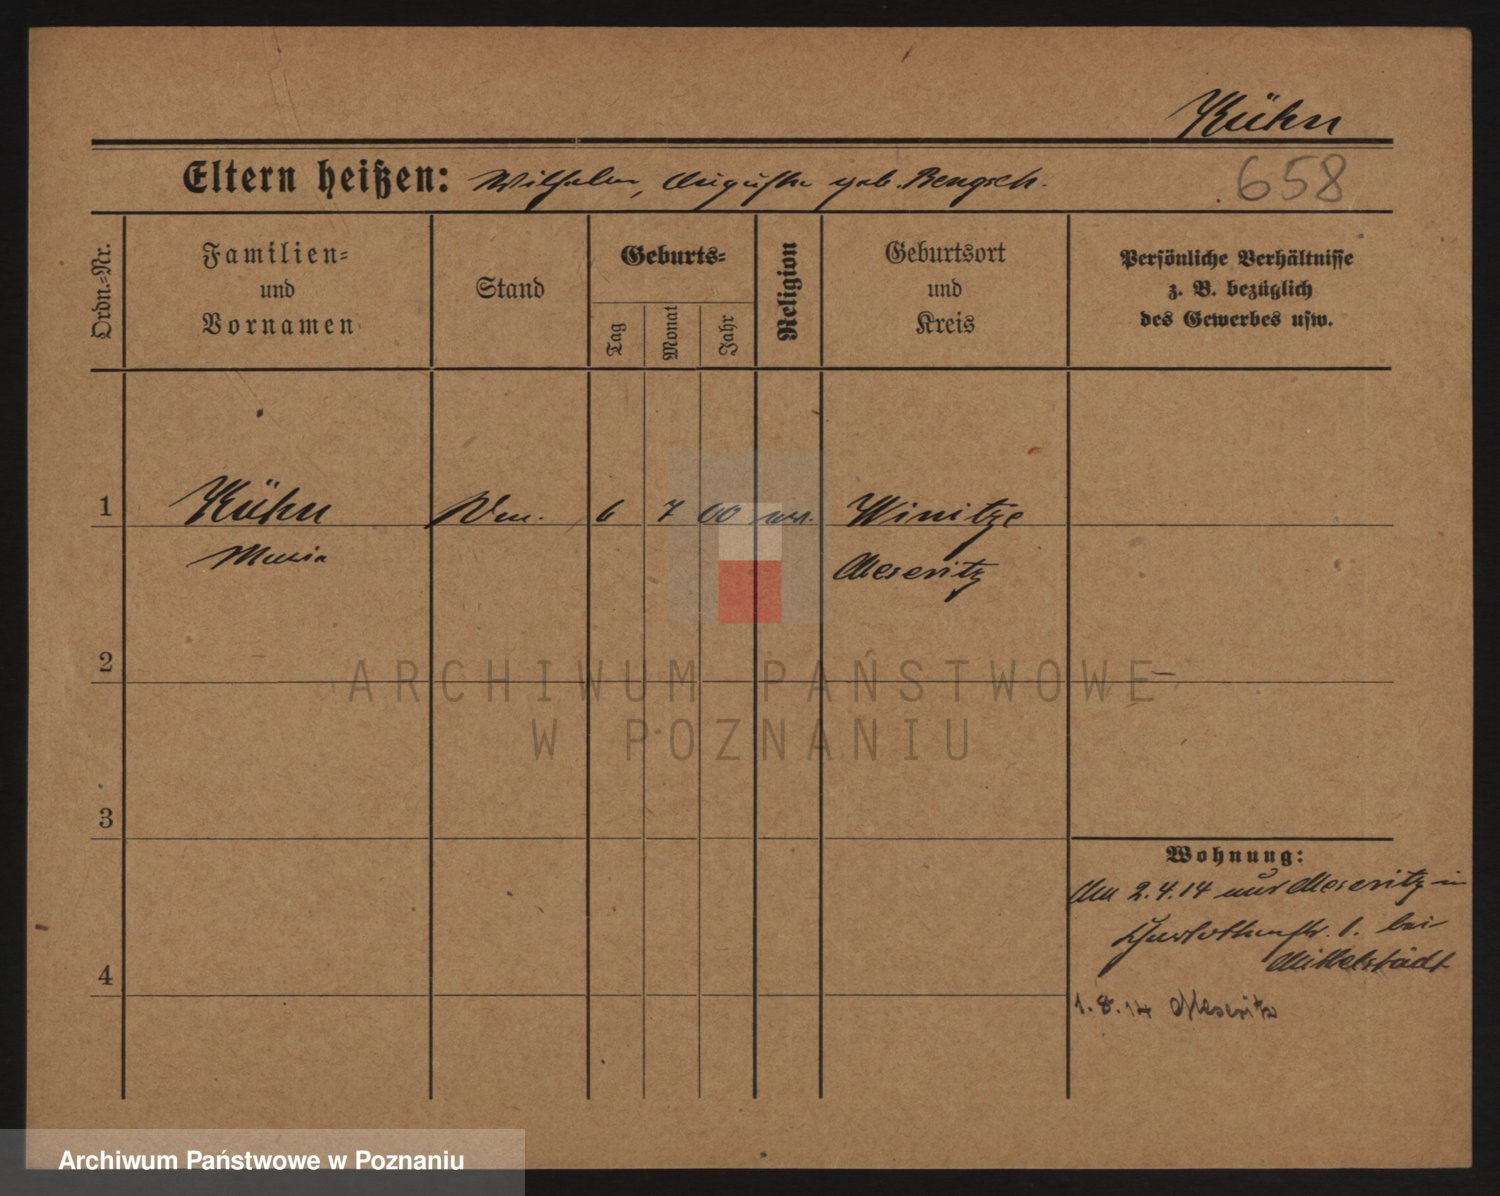 Kühn
Eltern heißen: Wilhelm, Auguste geb. Bengsch.
658
Ordn.=Nr.
Familien=
und
Vornamen
Stand
Geburts=
Tag
Monat
Jahr
Religion
Geburtsort
und
Kreis
Persönliche Verhältnisse
z. B. bezüglich
des Gewerbes usw.
1 Kühn 6 7 00 Winitze
Maria Meseritz
2
ARCHIWUM PAŃSTWOWE
W POZNANIU
3
Wohnung:
Am 2.4.14 aus Meseritz in
1. bei
Mittelstädt
4
1.8.14 Meseritz
Archiwum Państwowe w Poznaniu